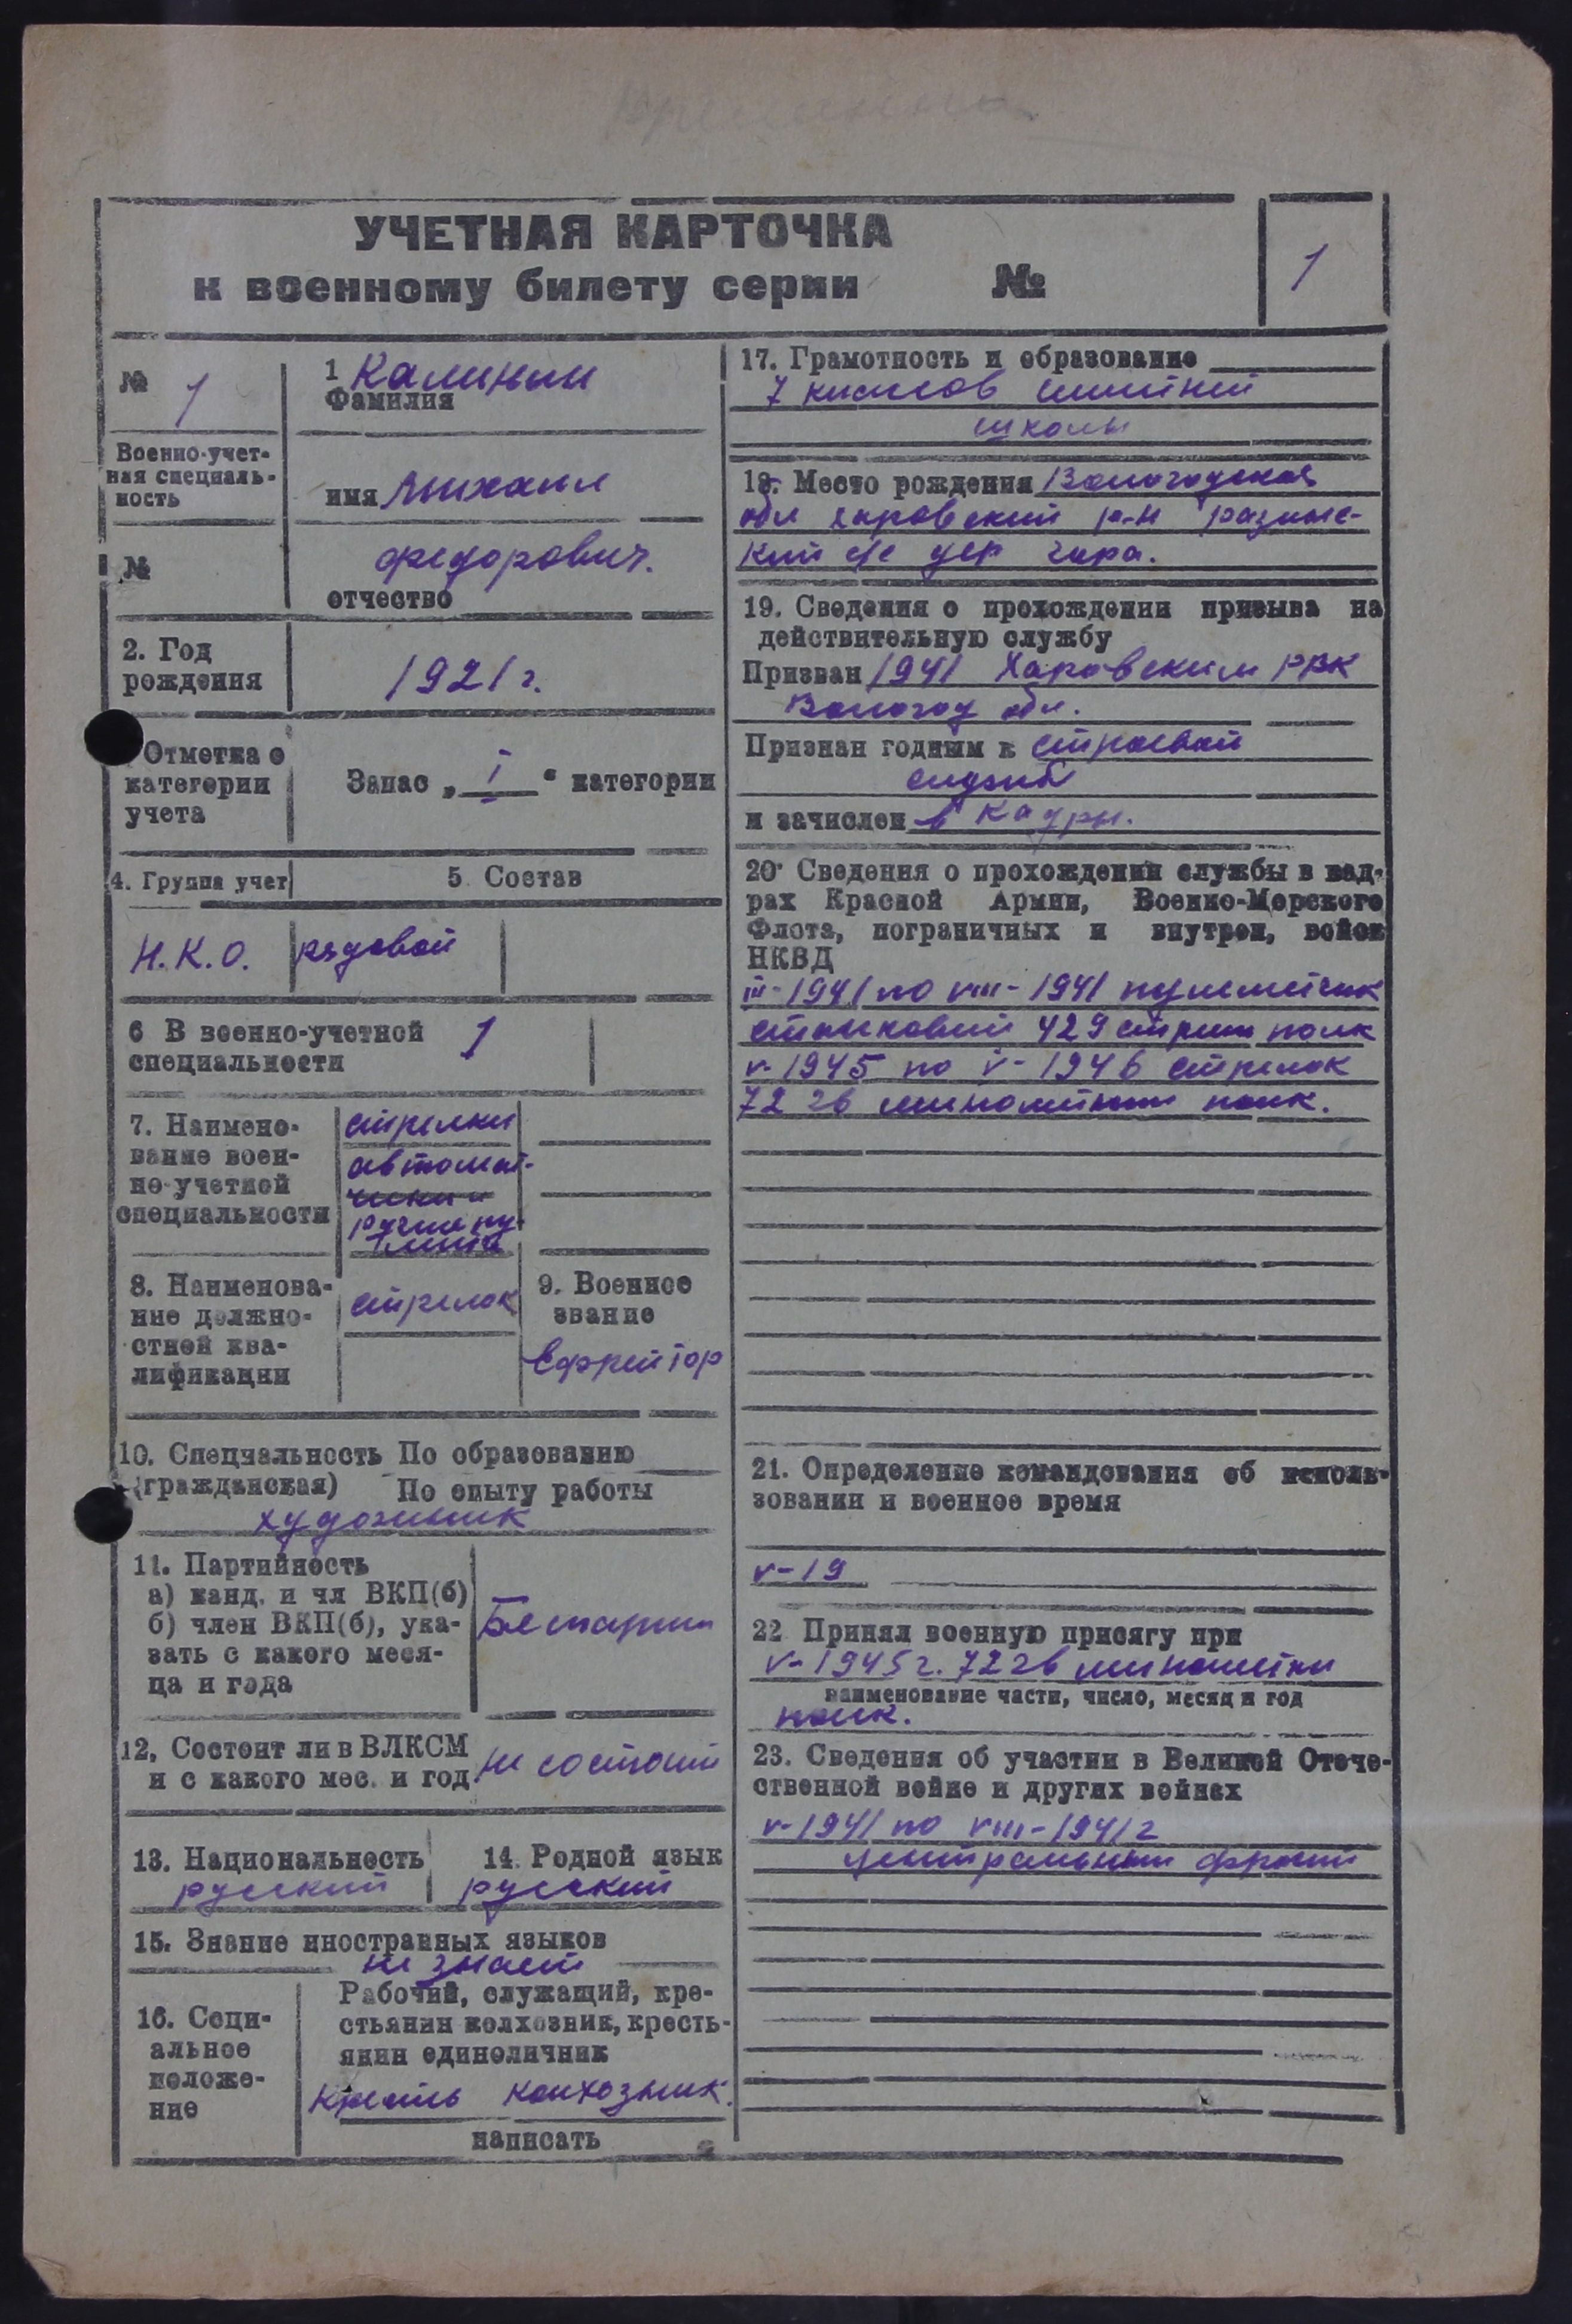 УЧЕТНАЯ КАРТОЧКА
к военному билету серии №
1
№ 1
1 Калинин
Фамилия
Военно-учет-
ная специаль-
ность
имя Михаил
№
Федорович.
отчество
2. Год
рождения
1921 г.
Отметка о
категории
учета
Запас „ I “ категории
4. Группа учет
5 Состав
Н.К.О.
рядовой
6 В военно-учетной
специальности
1
7. Наимено-
вание воен-
но-учетной
специальности
стрелки
автомат-
чики и
8. Наименова-
ние должно-
стной ква-
лификации
стрелок
9. Военное
звание
Ефрейтор
10. Специальность По образованию
(гражданская) По опыту работы
художник
11. Партийность
а) канд. и чл ВКП(б)
б) член ВКП(б), ука-
зать с какого меся-
ца и года
12, Состоит ли в ВЛКСМ
и с какого мес. и год
не состоит
13. Национальность
русский
14. Родной язык
русский
15. Знание иностранных языков
не знает
16. Соци-
альное
положе-
ние
Рабочий, служащий, кре-
стьянин колхозник, кресть-
янин единоличник
колхозник.
написать
17. Грамотность и образование
7 классов
школы
18. Место рождения Вологодская
обл Харовский р-н
кий с/с дер Гора.
19. Сведения о прохождении призыва на
действительную службу
Призван 1941 Харовским РВК
Вологод обл.
Признан годным к строевой
службе
и зачислен в кадры.
20. Сведения о прохождении службы в кад-
рах Красной Армии, Военно-Морского
Флота, пограничных и внутрен, войск
НКВД
III-1941 по VIII-1941 пулеметчик
станковый 429 стрелк полк
V-1945 по V-1946 стрелок
72 гв минометный полк.
21. Определение командования об исполь-
зовании и военное время
V-19
22 Принял военную присягу при
V-1945 г. 72 гв минометн
наименование части, число, месяц и год
полк.
23. Сведения об участии в Великой Отече-
ственной войне и других войнах
V-1941 по VIII-1941 г
центральный фронт